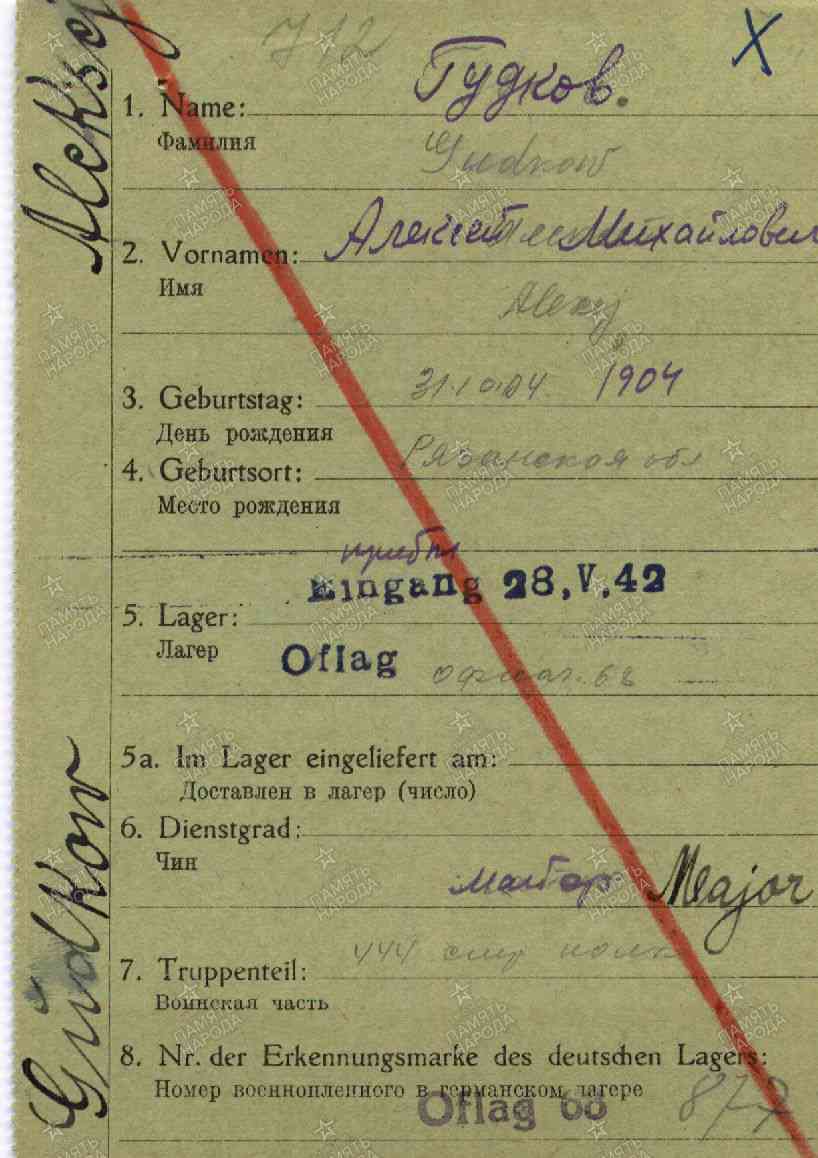 712 X
Гудков.
1. Name:
Фамилия
Gudkow
Алексей Михайлович
2. Vornamen:
Имя
Alexej
3. Geburtstag: 31.10.04. 1904
День рождения
4. Geburtsort: Рязанской обл
Место рождения
прибыл
Eingang 28.V.42
5. Lager:
Лагер
Oflag офлаг. 68
5a. Im Lager eingeliefert am:
Доставлен в лагер (число)
6. Dienstgrad:
Чин
майор Major
7. Truppenteil: 444 стр полк
Воинская часть
8. Nr. der Erkennungsmarke des deutschen Lagers:
Номер военнопленного в германском лагере
Oflag 68 877
Gudkow Aleksej
ПАМЯТЬ НАРОДА